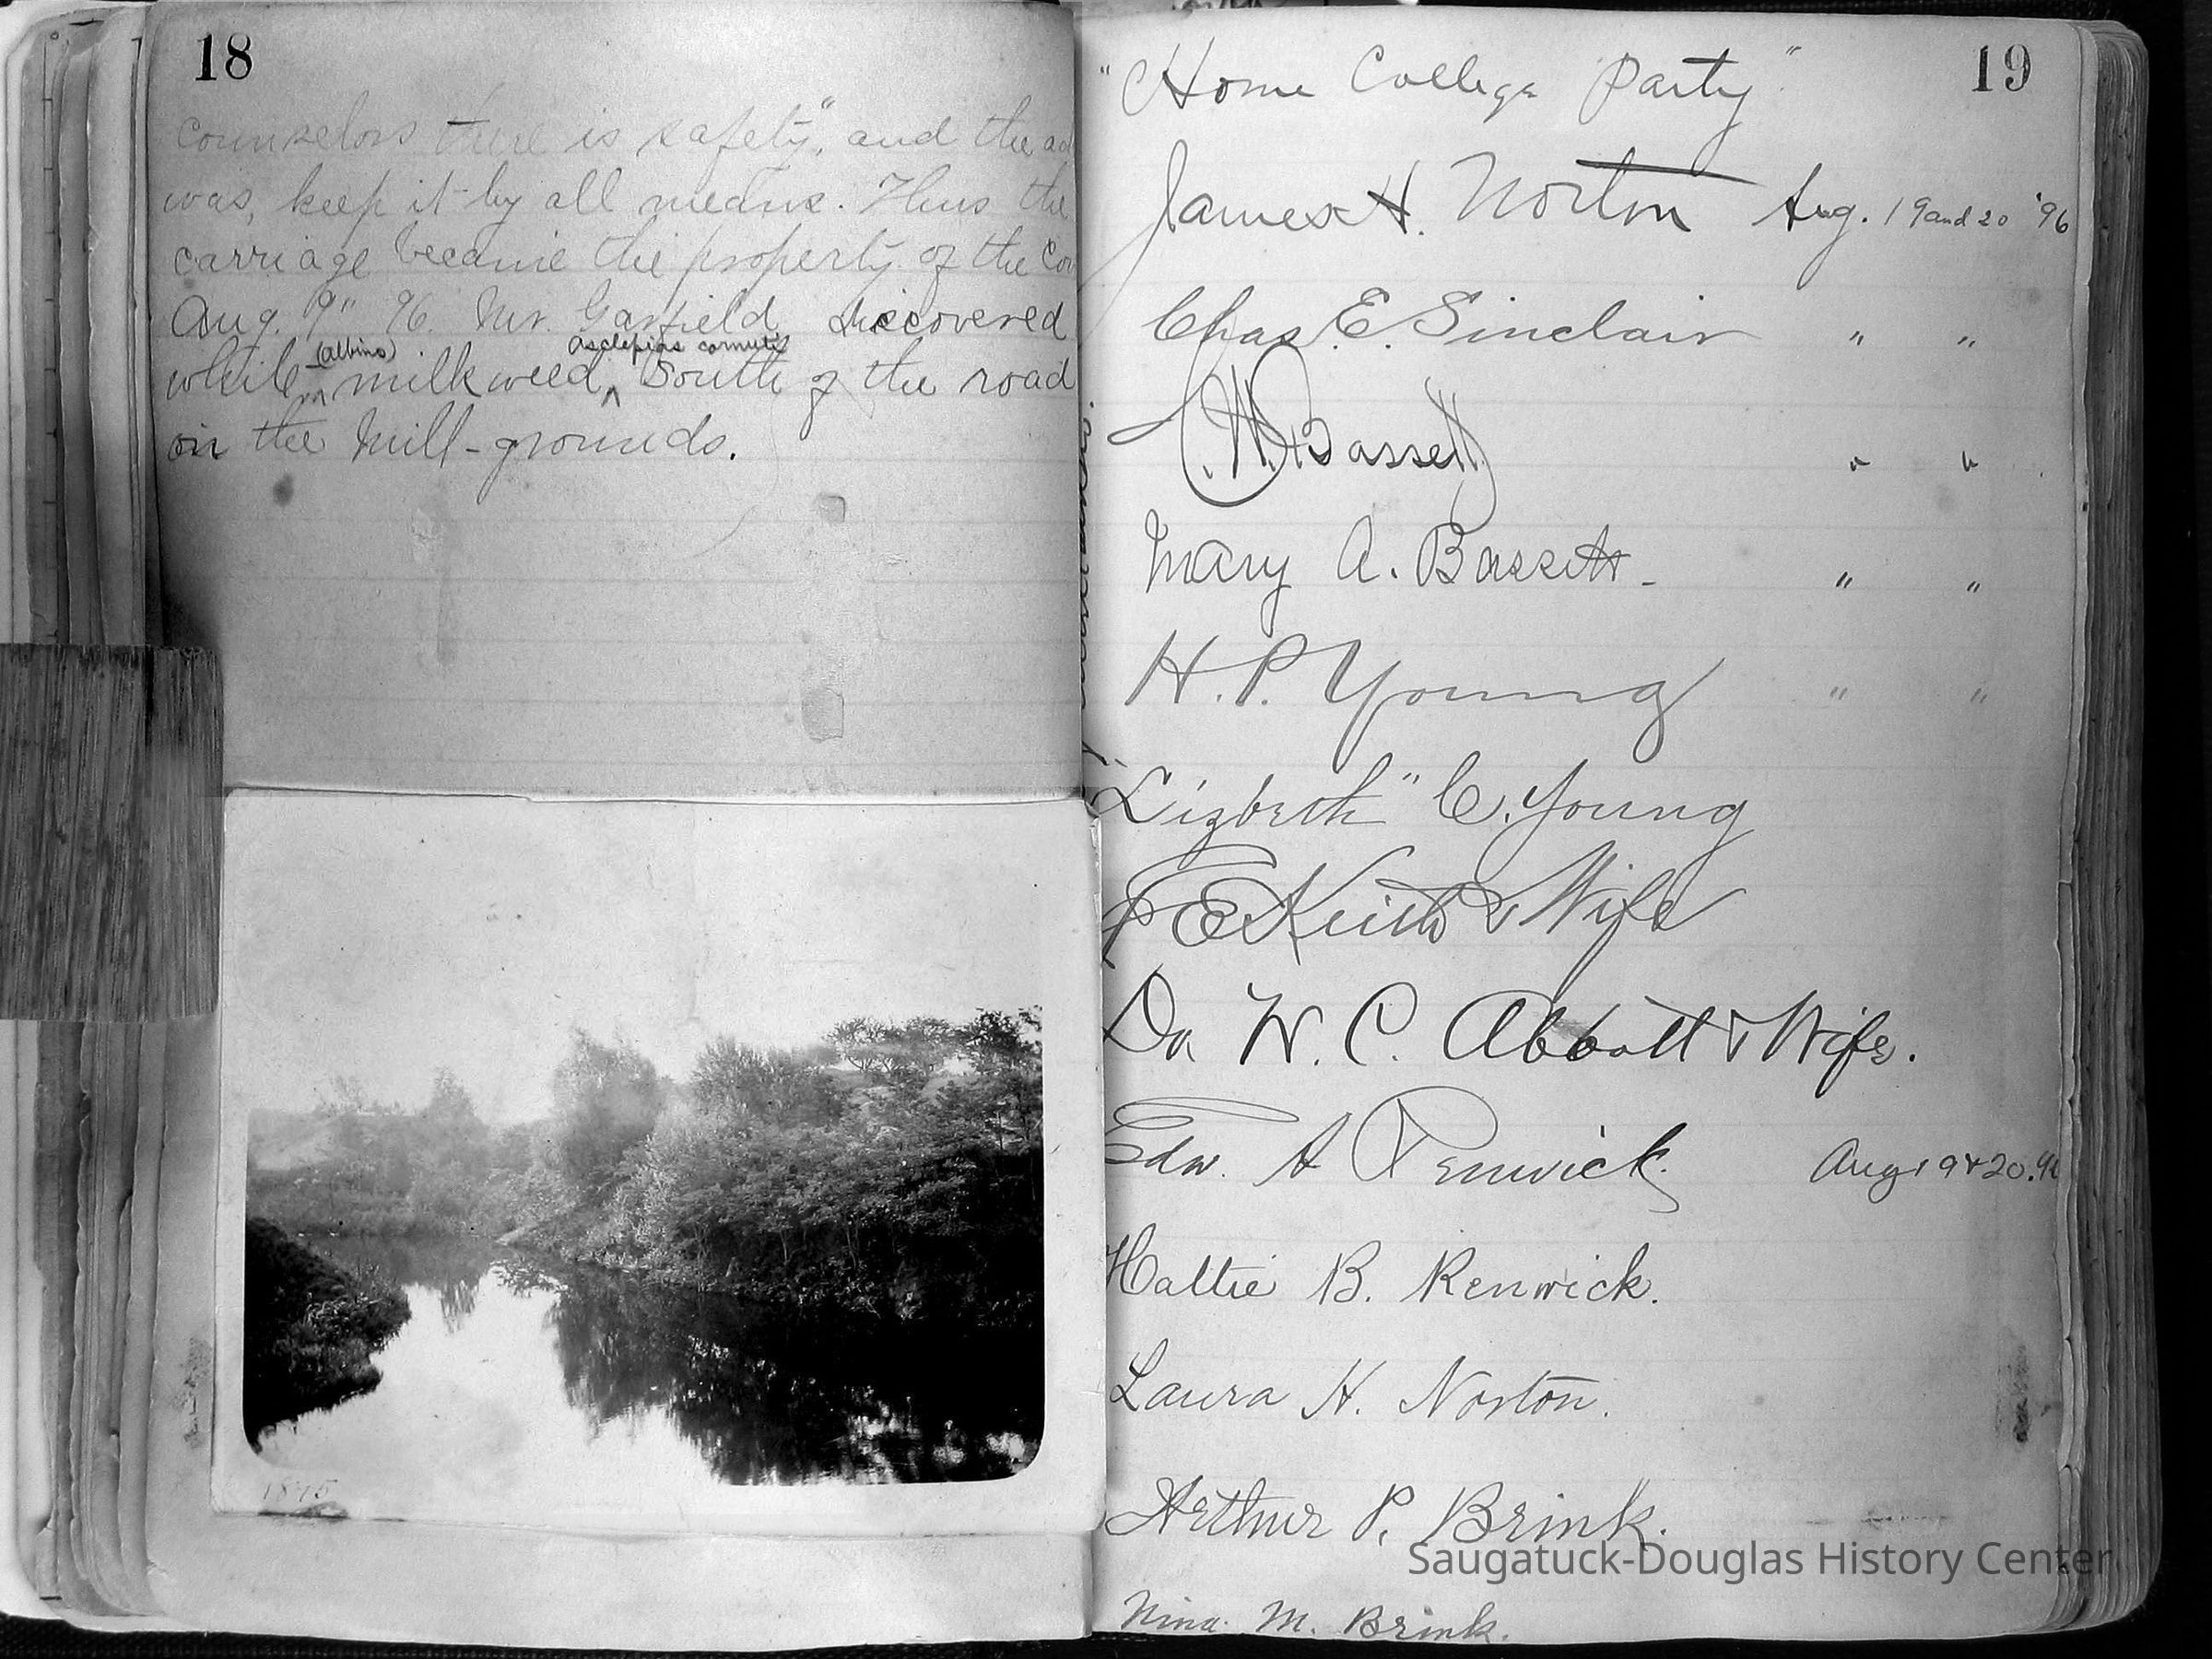 18
counselors there is safety", and the
was, keep it by all means. Thus the
carriage became the property of the
Aug. 9" 96. Mr. Garfield discovered
(albino) asclepias cornuti
white milkweed, South of the road
on the Mill-grounds.
1895
19
"Home College Party"
James H. Norton Aug. 19 and 20 '96
Chas. E. Sinclair " "
Bassett " "
Mary A. Bassett - " "
H. P. Young " "
"Lizbeth" C. Young
E Keith & Wife
Dr W. C. Abbott & Wife.
Edw. A Renwick. Aug 19 & 20. 96
Hattie B. Renwick.
Laura H. Norton.
Arthur P. Brink.
Nina M. Brink.
Saugatuck-Douglas History Center